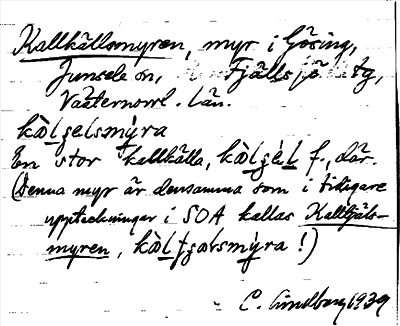 Kallkällsmyren, myr i Gåsing,
Junsele sn, Fjällsjö tg,
Västernorrl. län.
kàlgelsmyra
En stor kallkälla, kàlgèl f., där.
(Denna myr är densamma som i tidigare
uppteckningar i SOA kallas Kalltjäls-
myren, smyra !)
C. Lundberg 1939